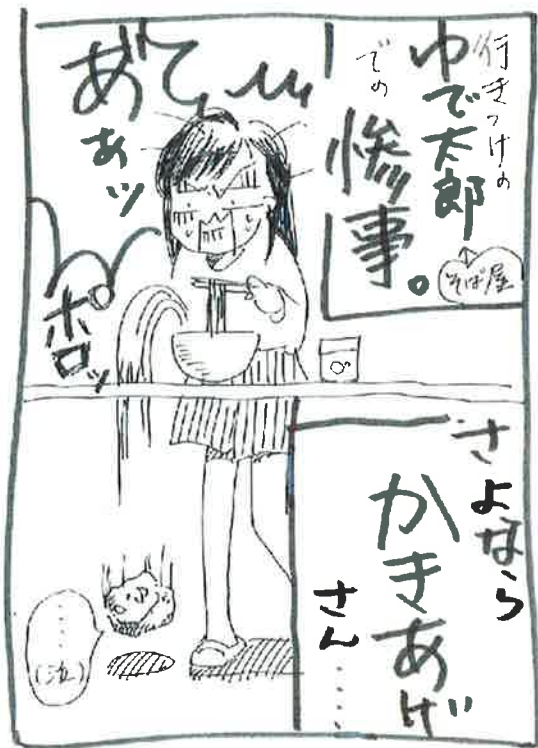 行きつけの
ゆで太郎
での
惨事。
そば屋
あ゛て゛
あぁッ
ポロッ
さよなら
かきあげ
さん……
……
(泣)